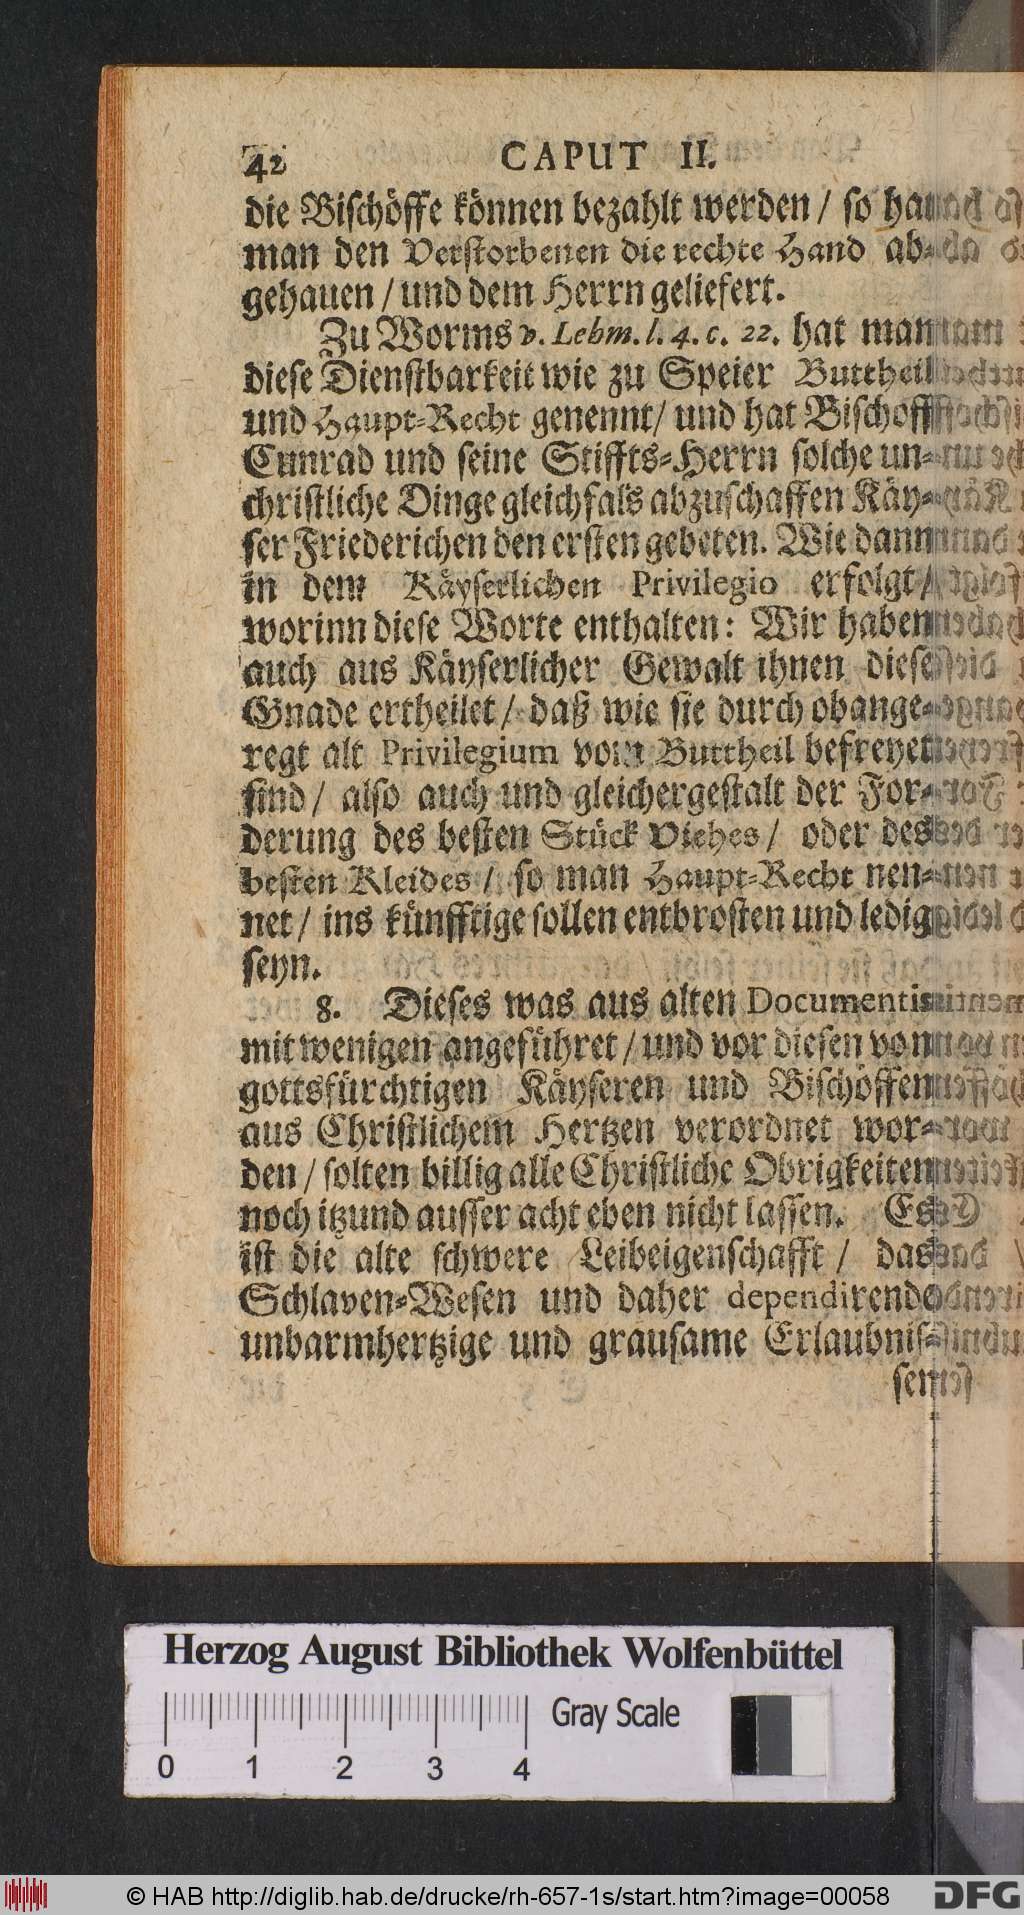 42 CAPUT II.
die Bischöffe können bezahlt werden / so hat
man den Verstorbenen die rechte Hand ab-
gehauen / und dem Herrn geliefert.
Zu Worms v. Lehm. l. 4. c. 22. hat man
diese Dienstbarkeit wie zu Speier Buttheil
und Haupt-Recht genennt / und hat Bischoff
Cunrad und seine Stiffts-Herrn solche un-
christliche Dinge gleichfals abzuschaffen Käy-
ser Friederichen den ersten gebeten. Wie dann
in dem Käyserlichen Privilegio erfolgt /
worinn diese Worte enthalten: Wir haben
auch aus Käyserlicher Gewalt ihnen diese
Gnade ertheilet / daß wie sie durch obange-
regt alt Privilegium vom Buttheil befreyet
sind / also auch und gleichergestalt der For-
derung des besten Stück Viehes / oder des
besten Kleides / so man Haupt-Recht nen-
net / ins künfftige sollen entbrosten und ledig
seyn.
8. Dieses was aus alten Documentis
mit wenigen angeführet / und vor diesen von
gottsfürchtigen Käyseren und Bischöffen
aus Christlichem Hertzen verordnet wor-
den / solten billig alle Christliche Obrigkeiten
noch itzund ausser acht eben nicht lassen. Es
ist die alte schwere Leibeigenschafft / das
Schlaven-Wesen und daher dependirende
unbarmhertzige und grausame Erlaubnis
Herzog August Bibliothek Wolfenbüttel
0 1 2 3 4 Gray Scale
© HAB http://diglib.hab.de/drucke/rh-657-1s/start.htm?image=00058 DFG